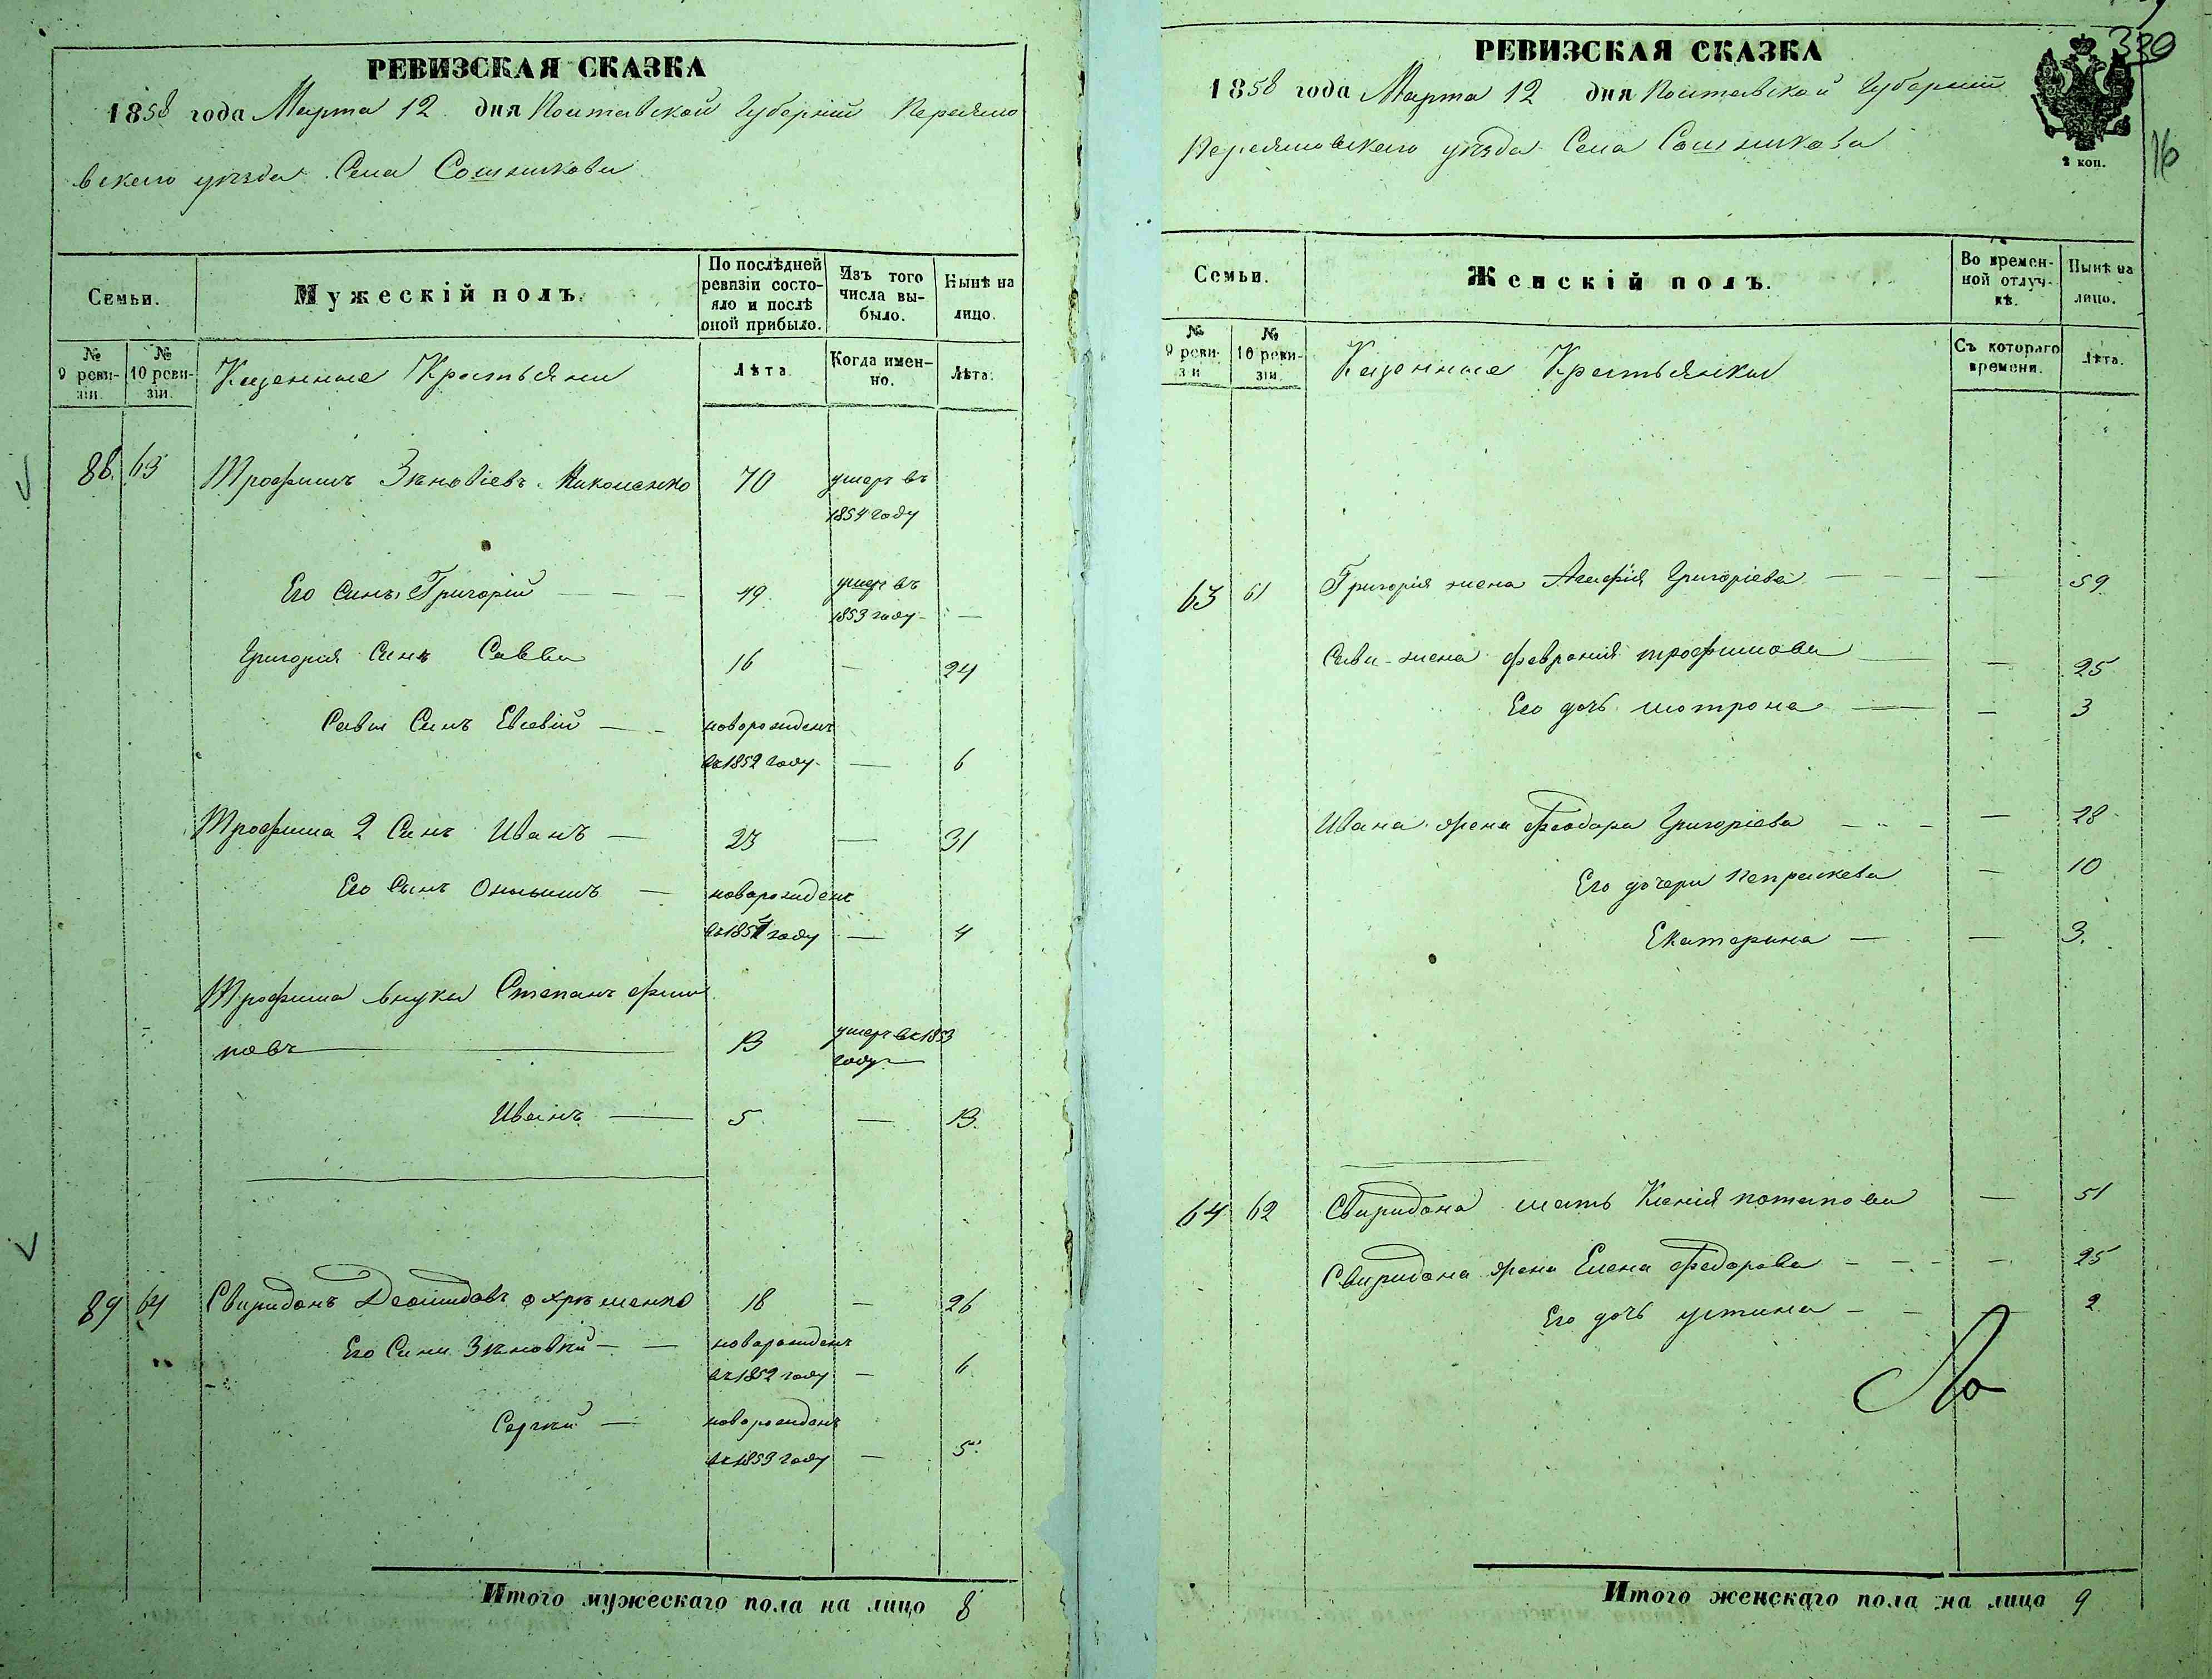 РЕВИЗСКАЯ СКАЗКА
1858 года Марта 12 дня Полтавской Губерніи Переясло
вскаго уѣзда Села Сошникова
Семьи.
Мужескій полъ.
По послѣдней ревизіи состояло и послѣ оной прибыло.
Изъ того числа выбыло.
Нынѣ на лицо.
№ 9 ревизіи.
№ 10 ревизіи.
Казенные Крестьяни
Лѣта.
Когда именно.
Лѣта.
88 63 Трофимъ Зѣновіевъ Николенко 70 умеръ въ
1854 году
Его Синъ Григорій — — — 49 умеръ въ
1853 году —
Григорія Синъ Савва 16 — 24
Савы Синъ Евсевій — — новорожденъ
въ 1852 году — 6
Трофима 2 Синъ Иванъ — 23 — 31
Его Сынъ — новорожденъ
въ 1854 году — 4
Трофима внуки Степанъ Фили
повъ — 13 умеръ въ 1853
году —
Иванъ — 5 — 13.
89 64 Свиридонъ Деомидовъ Охрѣменко 18 — 26
Его Сини Зѣновій — — новорожденъ
въ 1852 году — 6
Сергѣй — новорожденъ
въ 1853 году — 5
Итого мужескаго пола на лицо 8
330
РЕВИЗСКАЯ СКАЗКА
1858 года Марта 12 дня Полтавской Губерніи
Переясловскаго уѣзда Села Сошникова
2 коп.
76
Семьи.
Женскій полъ.
Во временной отлучкѣ.
Нынѣ на лицо.
№ 9 ревизіи
№ 10 ревизіи.
Казенные Крестьянки
Съ котораго времени.
Лѣта.
63 61 Григорія жена Агафія Григоріева — — — — 59
Савы жена Февронія Трофимова — — 25
Его дочь Мотрона — — 3
Ивана жена Феодора Григоріева — — — — 28
Его дочери Пепраскева — 10
Екатерина — — 3.
64 62 Свиридона мать Ксенія Потапова — 51
Свиридона жена Елена Федорова — — — — 25
Его дочь Устина — — — 2
Итого женскаго пола на лицо 9